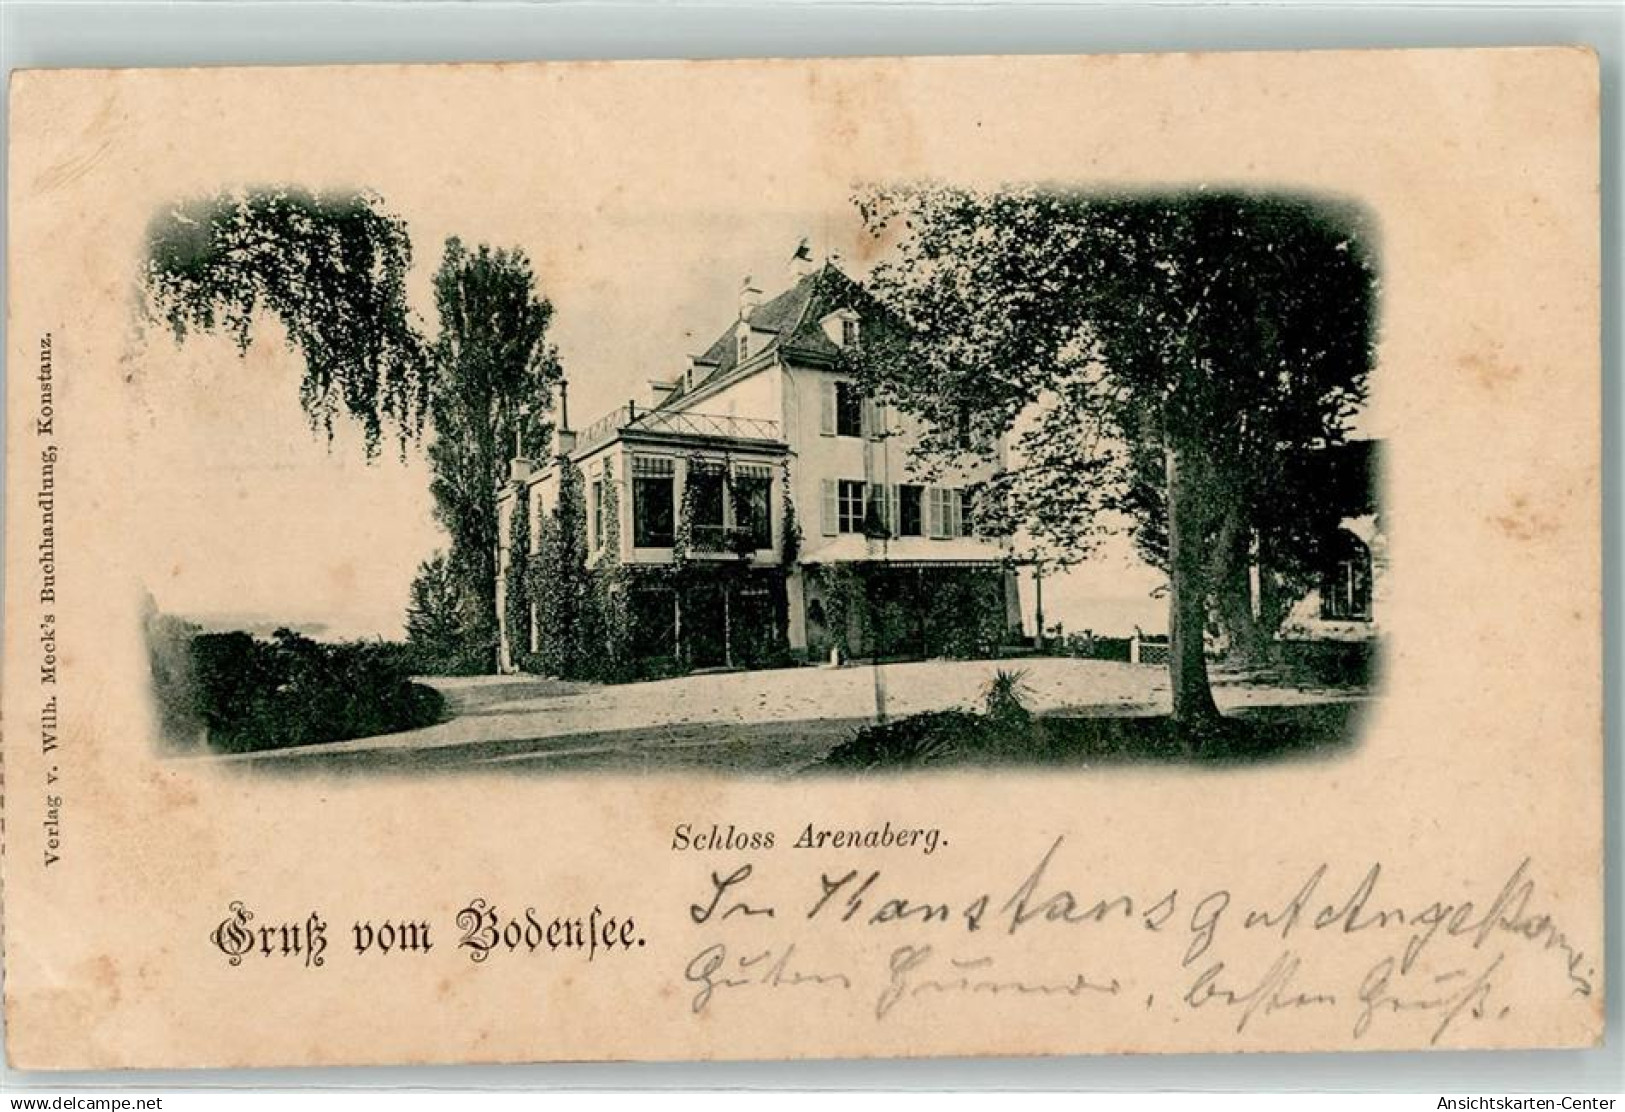 Verlag v. Wilh. Meck's Buchhandlung, Konstanz.
Schloss Arenaberg.
Gruß vom Bodensee.
In Konstans gut Angekomen
Guten Humor, besten Gruß.
www.delcampe.net
Ansichtskarten-Center